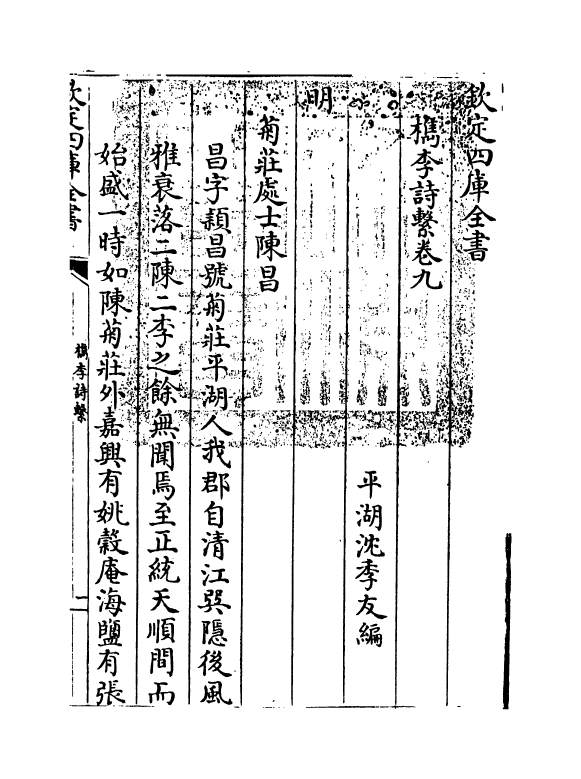 欽定四庫全書
檇李詩繫卷九
平湖沈季友編
明
菊莊處士陳昌
昌字頴昌號菊莊平湖人我郡自清江巽隱後風
雅衰落二陳二李之餘無聞焉至正統天順間而
始盛一時如陳菊莊外嘉興有姚穀庵海鹽有張
欽定四庫全書
檇李詩繫